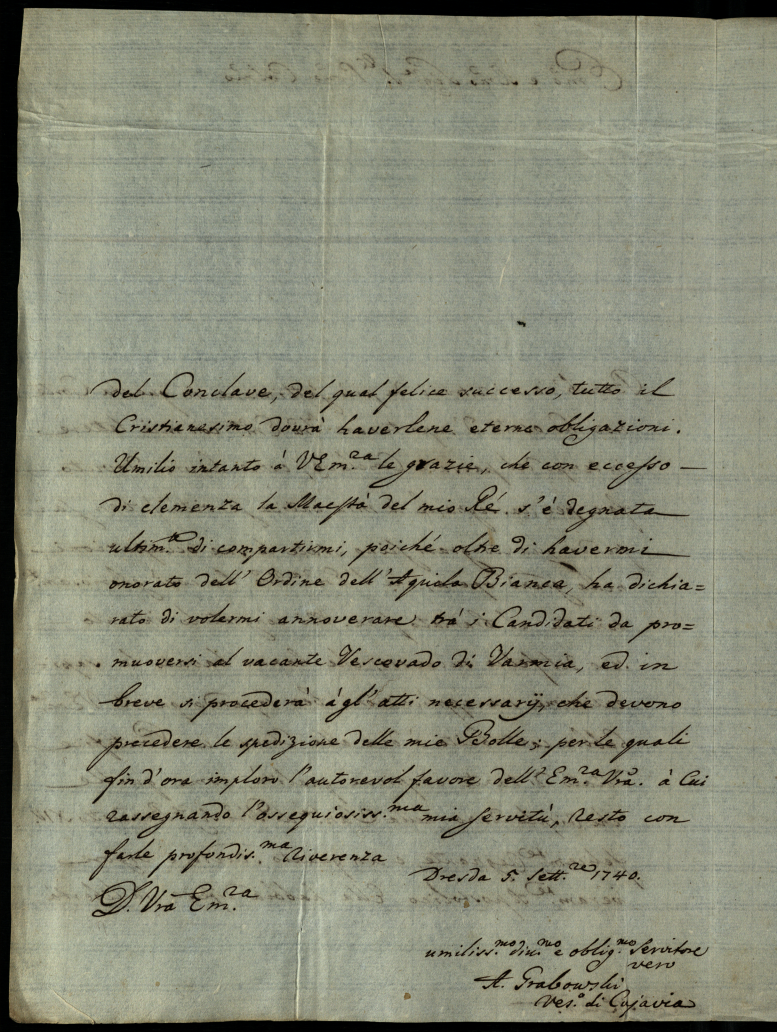 del Conclave, del qual felice successo, tutto il
Cristianesimo dovrà haverlene eterne obligazioni.
Umilio intanto á VEm.ra le grazie, che con eccesso
di clemenza la Maestà del mio Ré s'é degnata
ultim.te di compartirmi, poiché oltre di havermi
onorato dell' Ordine dell' Aquila Bianca, ha dichia=
rato di volermi annoverare trà i Candidati da pro=
muoversi al vacante Vescovado di Varmia, ed in
breve si procederà ágl'atti necessarij, che devono
precedere le spedizione delle mie Bolle; per le quali
fin d'ora imploro l'autorevol favore dell' Em.ra Vrã. à Cui
rassegnando l'ossequiosiss.ma mia servitù, resto con
farle profondis.ma riverenza
Dresda 5. Sett.re 1740.
D. Vrã Em.ra
umiliss.mo div.mo e oblig.mo Servitore
vero
A. Grabowski
Ves.o di Cujavia